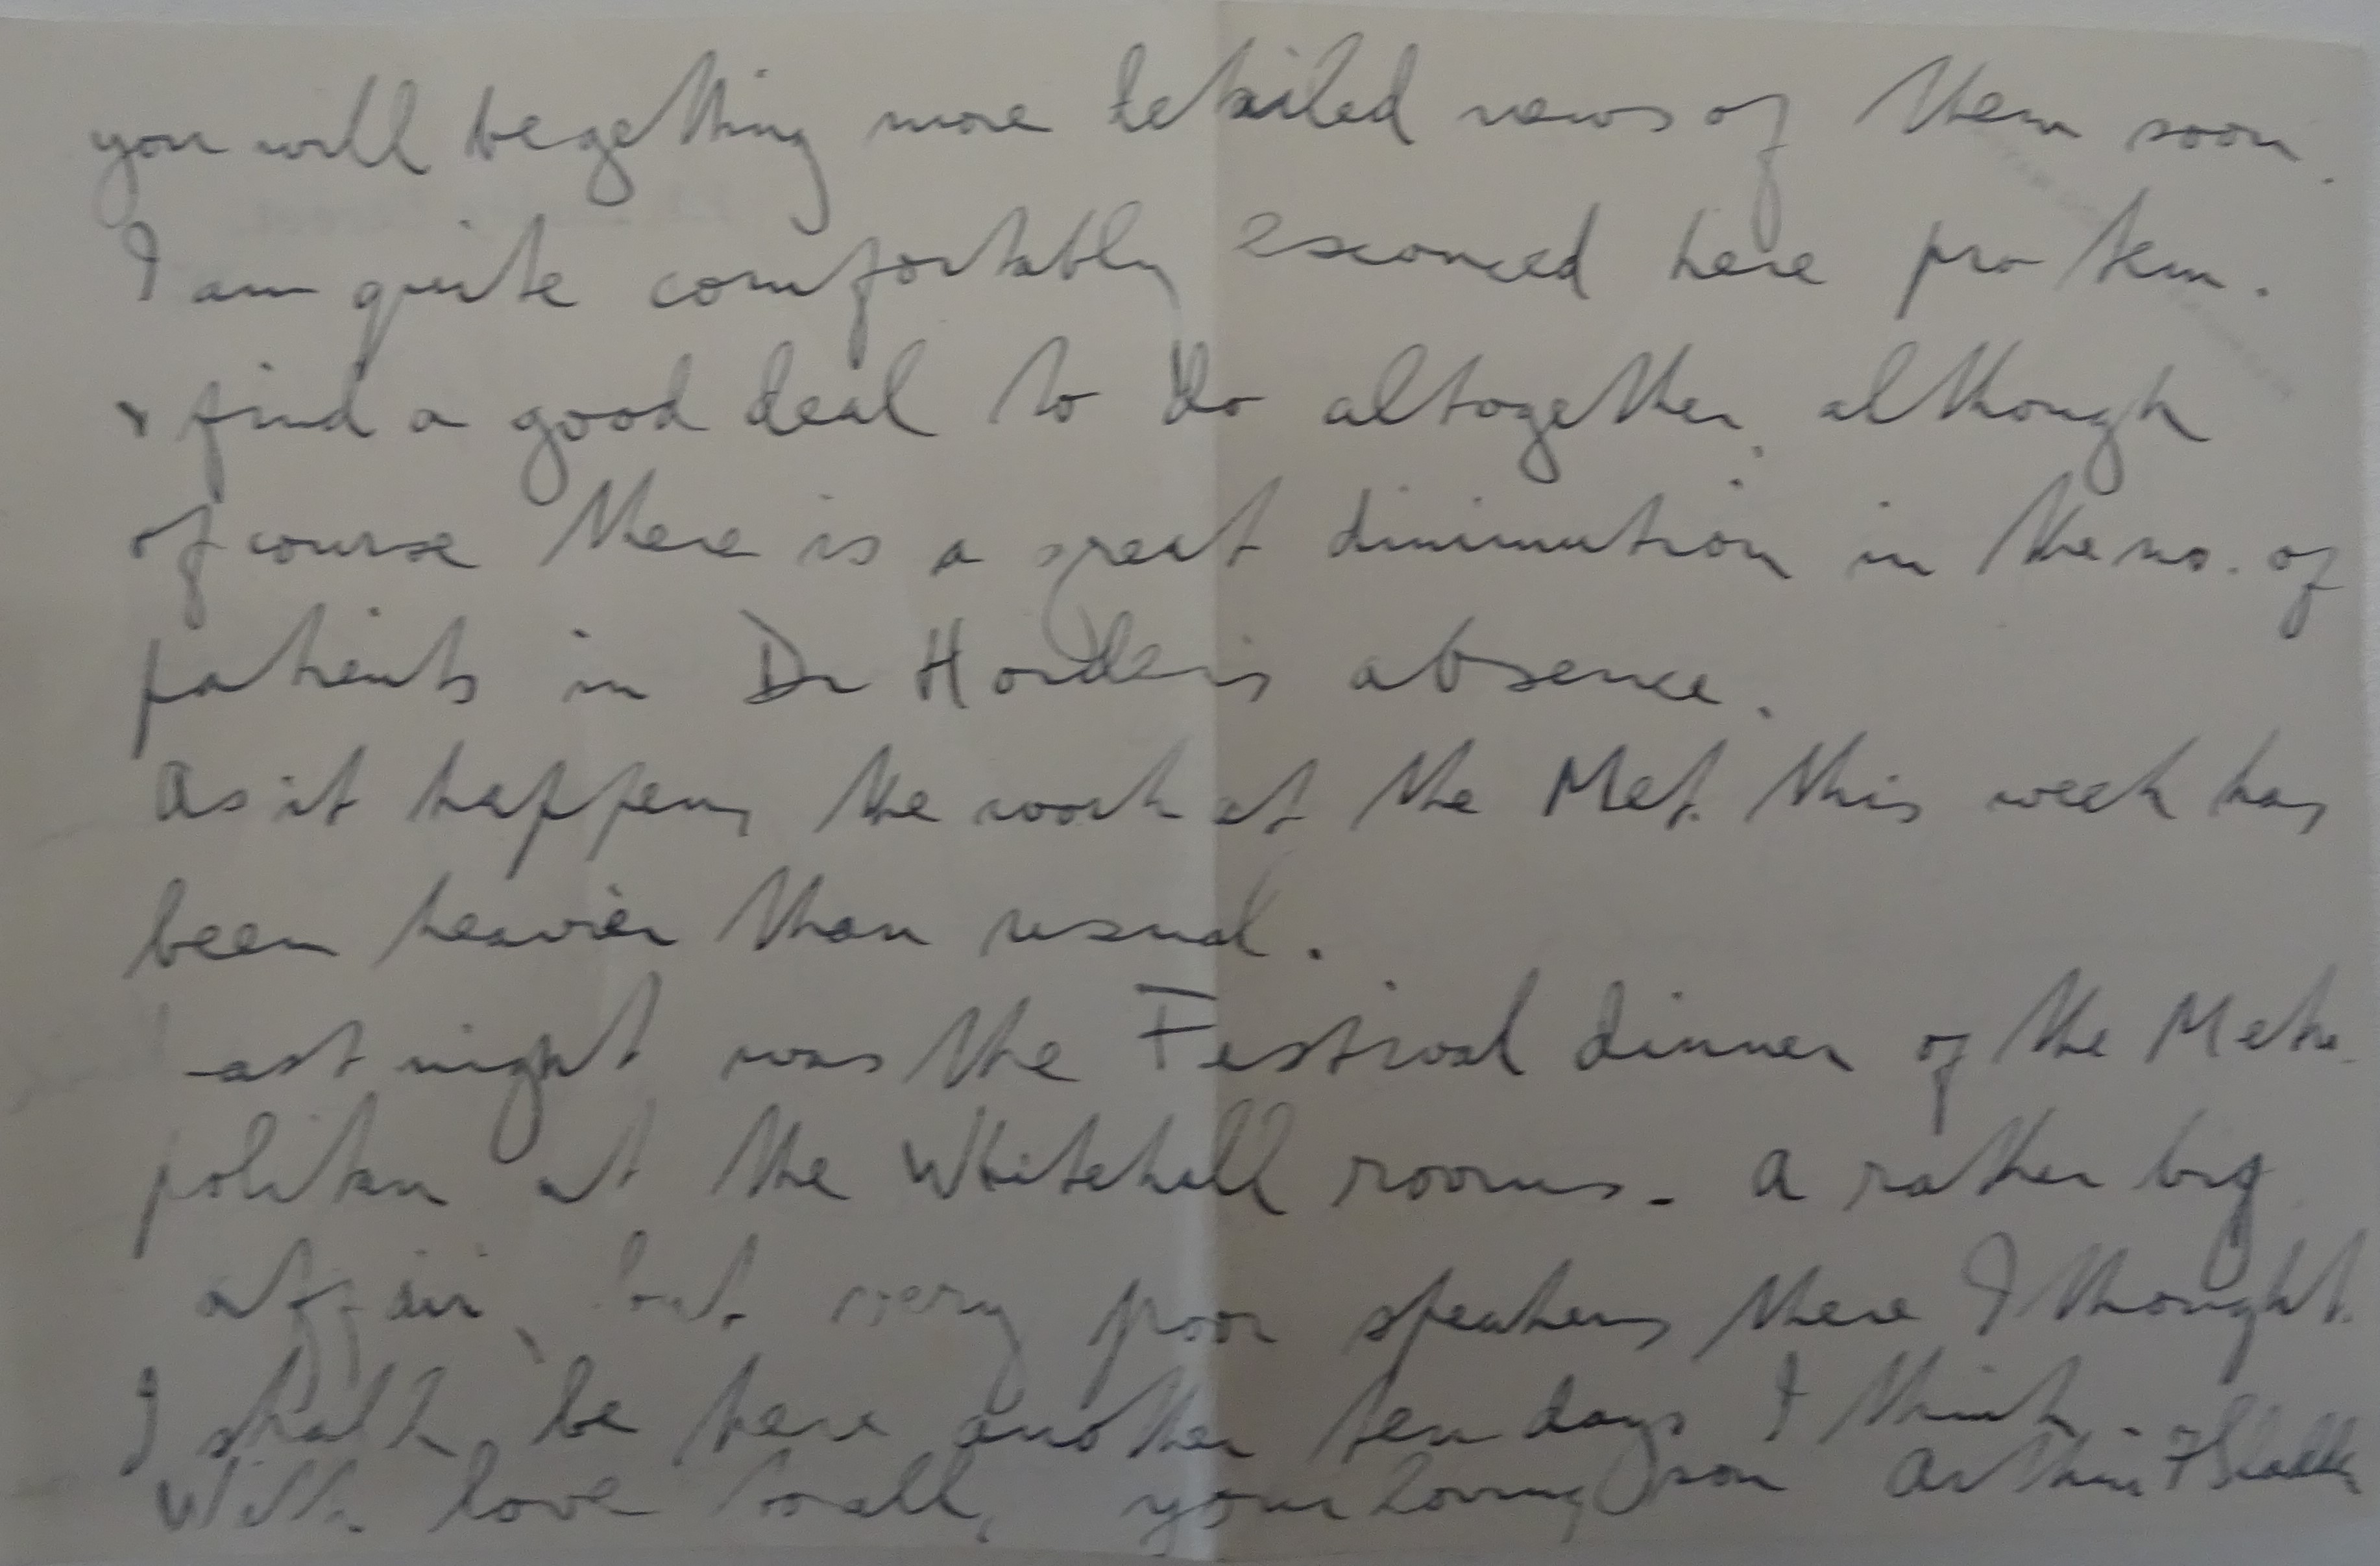 you will be getting more detailed news of them soon.
I am quite comfortably esconced here pro tem.
& find a good deal to do altogether, although
of course there is a great diminution in the no. of
patients in Dr Horder's absence.
As it happens the work at the Met. this week has
been heavier than usual.
Last night was the Festival dinner of the Metro-
politan at the Whitehall rooms - a rather big
affair, but very poor speakers there I thought.
I shall be here another ten days I think.
With love to all, your loving son Arthur F